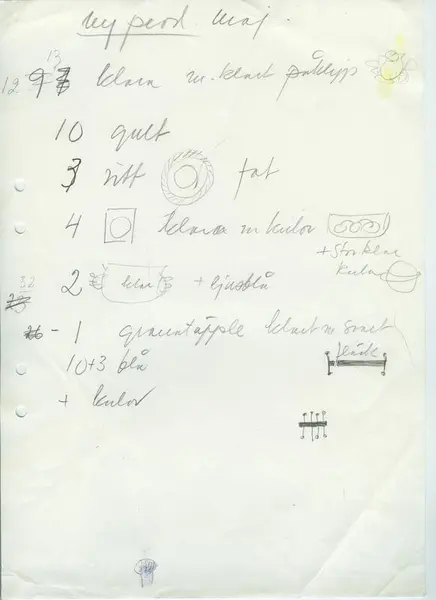 ny prod. maj.
13
12 klara m. klart påklipp
10 gult
3 vitt fat
4 klara m kulor
+ Stor klar
kula
32
2 klar + ljusblå
- 1 granatäpple klart m svart
10+3 blå
+ kulor